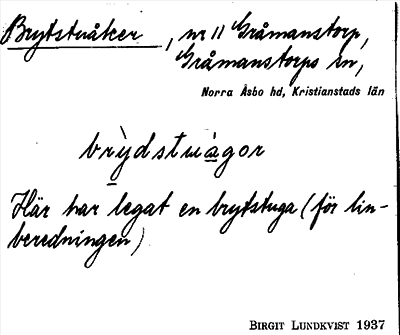 Brytstuåker, nr 11 Gråmanstorp,
Gråmanstorps sn,
Norra Åsbo hd, Kristianstads län
brỳdstuågor
Här har legat en brytstuga (för lin-
beredningen)
BIRGIT LUNDKVIST 1937